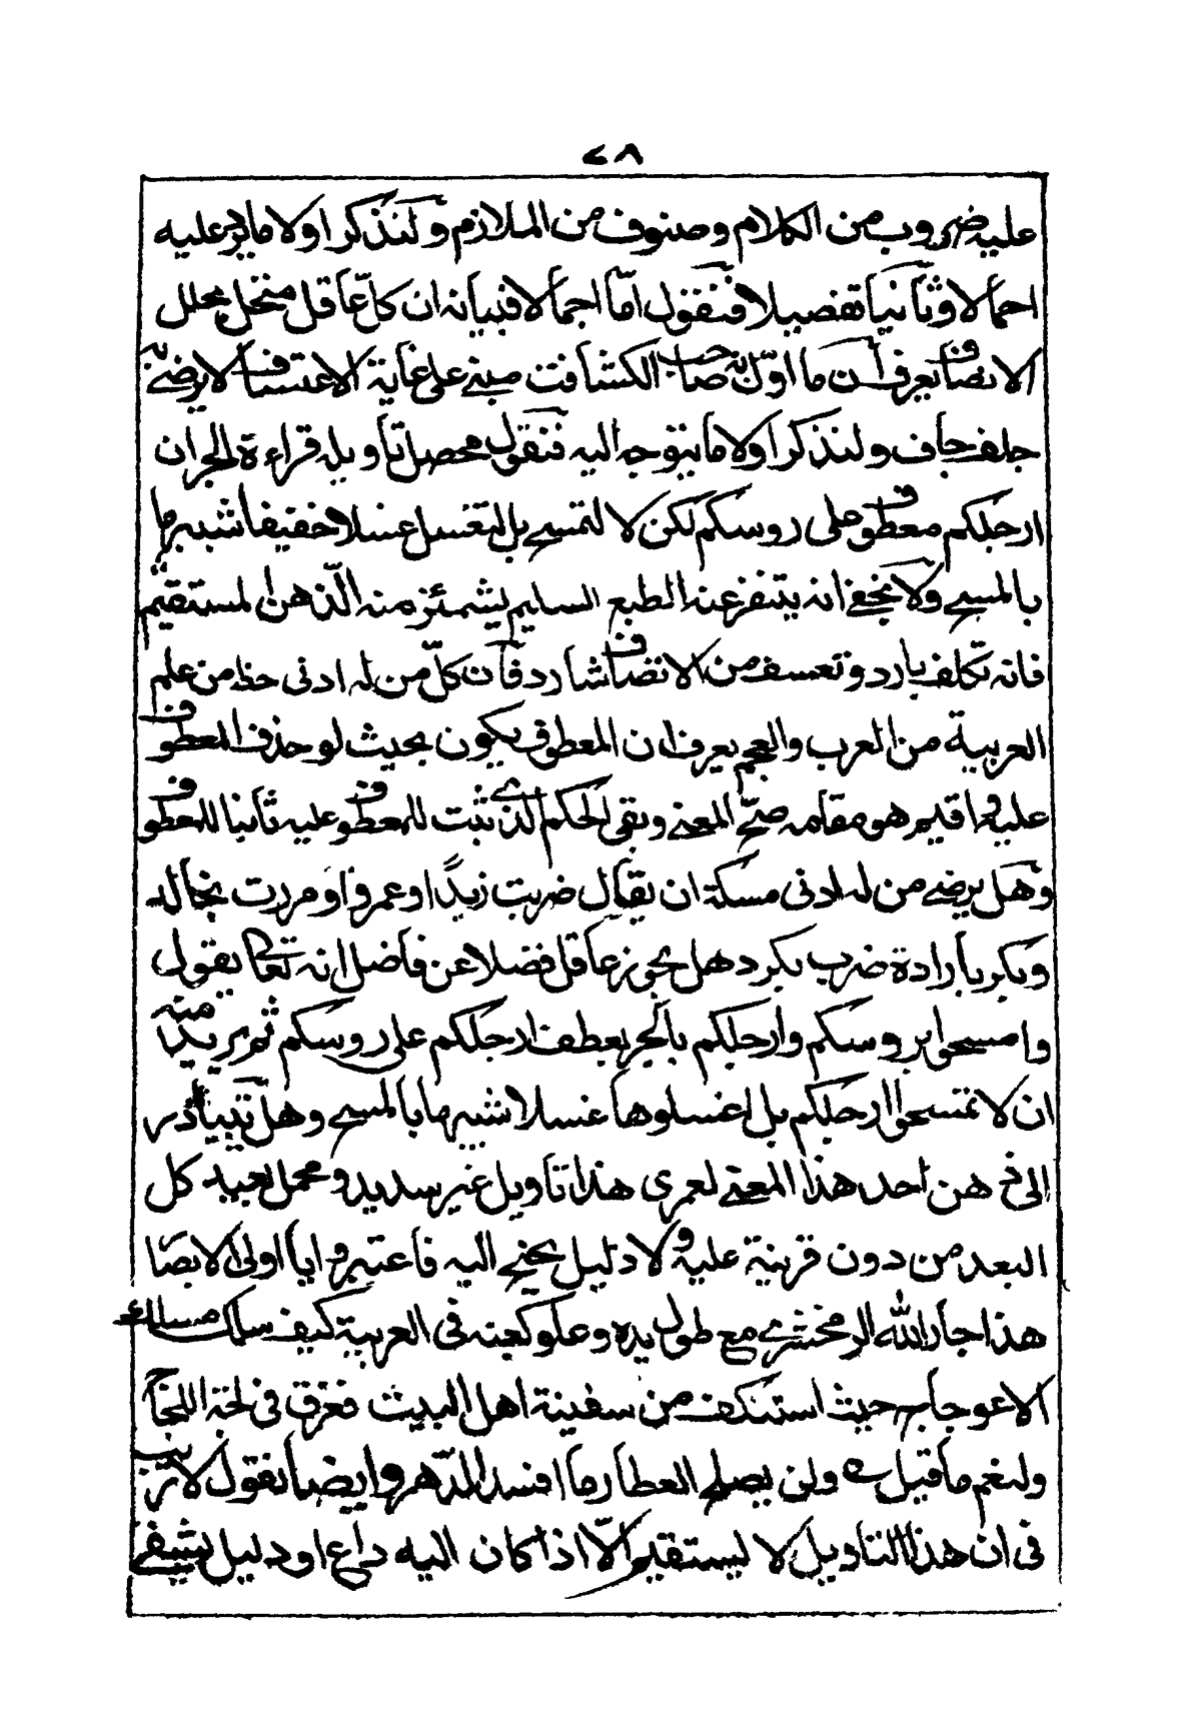 ٧٨
عليه ضروب من الكلام وصنوف من الملازم ولنذكر اولا ما يرد عليه
اجمالا وثانيا تفصيلا فنقول امّا اجمالا فبيانه ان كلّ عاقل منخل بخلل
الانصاف يعرف أن ما اوّل به صاحب الكشاف مبنى على غاية الاعتساف لا يرضى به
جلف جاف ولنذكر اولا ما يتوجه اليه فنقول محصل تاويله قراءة الجر ان
ارجلكم معطوف على روسكم لكن لا لتمسح بل لتغسل غسلا خفيفا شبيها
بالمسح ولا يخفى انه يتنفر عنه الطبع السليم يشمئز منه الذّهن المستقيم
فانه تكلف بارد وتعسف من الانصاف شارد فان كلّ من له ادنى حظ من علم
العربية من العرب والعجم يعرف ان المعطوف يكون بحيث لو حذف المعطوف
عليه واقيم هو مقامه صحّ المعنى وبقى الحكم الذى ثبت للمعطوف عليه ثانيا للمعطوف
وهل يرضى من له ادنى مسكة ان يقال ضربت زيدًا وعمروا ومررت بخالد
وبكر بارادة ضرب بكر دهل يجوز عاقل فضلا عن فاضل انه تعالى يقول
وامسحوا بروسكم وارجلكم بالجر بعطف ارجلكم على روسكم ثم يريد منه
ان لا تمسحوا ارجلكم بل اغسلوها غسلا شبيها بالمسح وهل يتبادر
الى ذهن احد هذا المعنى لعمرى هذا تاويل غير سديد ومحمل بعيد كل
البعد من دون قرينة عليه ولا دليل يجنح اليه فاعتبروا يا اولى الابصا
هذا جار الله الزمخشرى مع طول يده وعلو كعبه فى العربية كيف سلك مسالك
الاعوجاج حيث استنكف من سفينة اهل البيت فغرق فى لجة اللجاج
ولنعم ما قيل ع ولن يصلح العطار ما افسد الدّهر وايضا نقول لا ريب
فى ان هذا التاويل لا يستقيم الّا اذا كان اليه داع او دليل يشفى